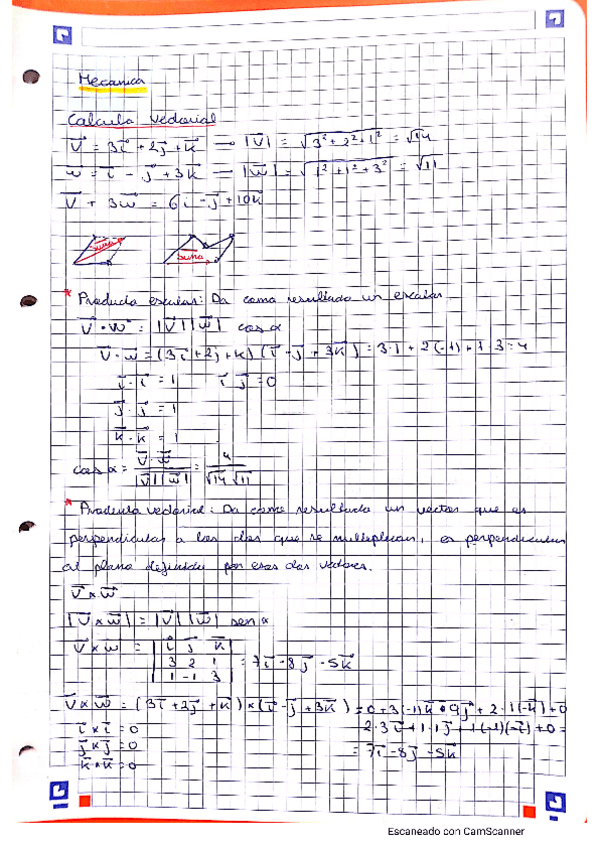 Mecanica
Calculo Vectorial
V⃗ = 3i⃗ + 2j⃗ + k⃗ — |V⃗| = √(3² + 2² + 1²) = √14
w⃗ = i⃗ - j⃗ + 3k⃗ — |w⃗| = √(1² + 1² + 3²) = √11
V⃗ + 3w⃗ = 6i⃗ - j⃗ + 10k⃗
suma suma
* Producto escalar: Da como resultado un escalar.
V⃗ · w⃗ = |V⃗| |w⃗| cos α
V⃗ · w⃗ = (3i⃗ + 2j + k) (i⃗ - j⃗ + 3k⃗) = 3·1 + 2(-1) + 1·3 = 4
i⃗ · i⃗ = 1 i⃗ · j⃗ = 0
j⃗ · j⃗ = 1
k⃗ · k⃗ = 1
cos α = (V⃗ · w⃗)/(|V⃗| |w⃗|) = 4/(√14 √11)
* Producto vectorial: Da como resultado un vector que es
perpendicular a los dos que se multiplican, es perpendicular
al plano definido por esos dos vectores.
V⃗ × w⃗
|V⃗ × w⃗| = |V⃗| |w⃗| sen α
V⃗ × w⃗ = | i⃗ j⃗ k⃗ |
| 3 2 1 | = 7i⃗ - 8j⃗ - 5k⃗
| 1 -1 3 |
V⃗ × w⃗ = (3i⃗ + 2j⃗ + k⃗) × (i⃗ - j⃗ + 3k⃗) = 0 + 3(-1)k⃗ 9j⃗ + 2·1(-k⃗) + 0
i⃗ × i⃗ = 0 2·3i⃗ + 1·1j⃗ + 1(-1)(-i⃗) + 0 =
j⃗ × j⃗ = 0 = 7i⃗ - 8j⃗ - 5k⃗
k⃗ × k⃗ = 0
Escaneado con CamScanner